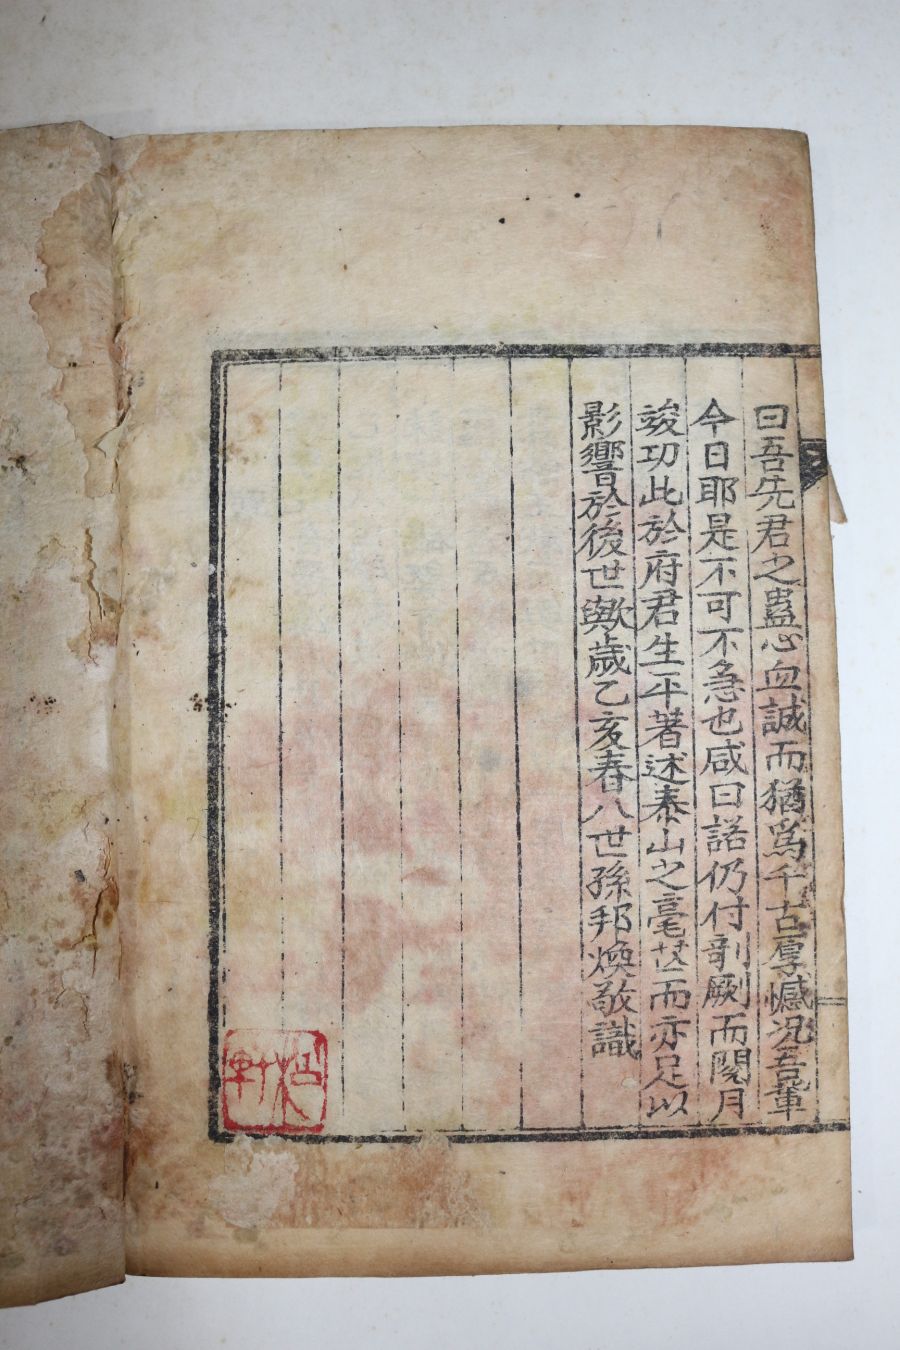 曰吾先君之蠱心血誠而猶爲千古厚憾况吾輩
今日耶是不可不急也咸曰諾仍付剞劂而閱月
竣功此於府君生平著述泰山之毫芒而亦足以
影響於後世歟歲乙亥春八世孫邦煥敬識